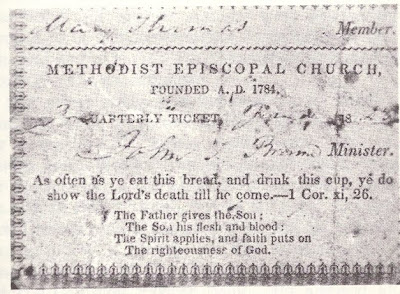 Mary Thomas Member.
METHODIST EPISCOPAL CHURCH,
FOUNDED A. D. 1784.
QUARTERLY TICKET, 18
John Minister.
As often as ye eat this bread, and drink this cup, ye do
show the Lord's death till he come.—1 Cor. xi, 26.
The Father gives the Son;
The Son his flesh and blood;
The Spirit applies, and faith puts on
The righteousness of God.